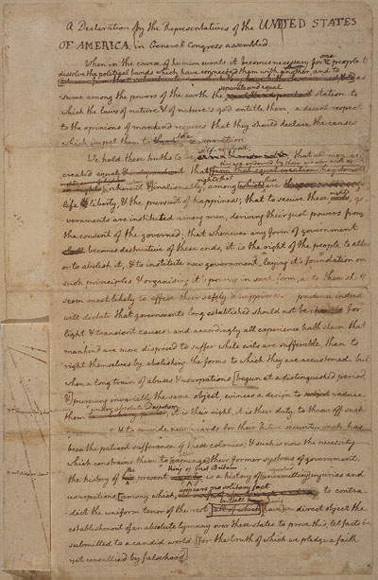 A Declaration by the Representatives of the UNITED STATES
OF AMERICA, in General Congress assembled.
When in the course of human events it becomes necessary for one people to
dissolve the political bands which have connected them with another, and to
assume among the powers of the earth the separate and equal station to
which the laws of nature & of nature's god entitle them, a decent respect
to the opinions of mankind requires that they should declare the causes
which impel them to the separation.
We hold these truths to be self-evident, that all men are
created equal
rights; that among these are
life, & liberty, & the pursuit of happiness; that to secure these rights, go
vernments are instituted among men, deriving their just powers from
the consent of the governed; that whenever any form of government
becomes destructive of these ends, it is the right of the people to alter
or to abolish it, & to institute new government, laying it's foundation on
such principles & organising it's powers in such form, as to them shall
seem most likely to effect their safety & happiness. prudence indeed
will dictate that governments long established should not be changed for
light & transient causes: and accordingly all experience hath shewn that
mankind are more disposed to suffer while evils are sufferable, than to
right themselves by abolishing the forms to which they are accustomed. but
when a long train of abuses & usurpations [begun at a distinguished period,
& pursuing invariably the same object, evinces a design to reduce
them under absolute Despotism, it is their right, it is their duty, to throw off such
& to provide new guards for their future security. such has
been the patient sufferance of these colonies; & such is now the necessity
which constrains them to [expunge] their former systems of government.
the history of the present King of Great Britain is a history of injuries and
usurpations, [among which appears no solitary fact to contra
dict the uniform tenor of the rest, [all of which] have in direct object the
establishment of an absolute tyranny over these states. to prove this, let facts be
submitted to a candid world, [for the truth of which we pledge a faith
yet unsullied by falsehood]